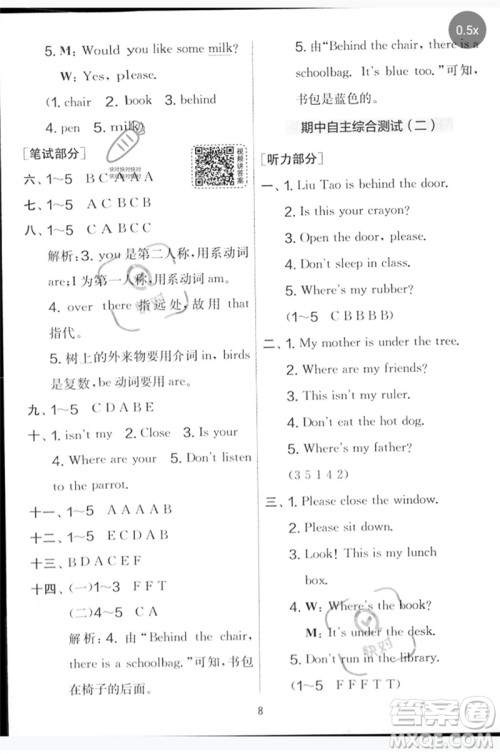 5. M: Would you like some milk?
W: Yes, please.
(1. chair 2. book 3. behind
4. pen 5. milk)
[笔试部分]
视频讲答案
六、1~5 B C A A A
七、1~5 A C B C B
八、1~5 C A B C C
解析: 3. you 是第二人称, 用系动词
are; I 为第一人称, 用系动词 am.
4. over there 指远处, 故用 that
指代.
5. 树上的外来物要用介词 in, birds
是复数, be 动词要用 are.
九、1~5 C D A B E
十、1. isn't my 2. Close 3. Is your
4. Where are your 5. Don't listen
to the parrot.
十一、1~5 A A A A B
十二、1~5 E C D A B
十三、B D A C E F
十四、(一)1~3 F F T
(二)4~5 C A
解析: 4. 由“Behind the chair,
there is a schoolbag.”可知, 书包
在椅子的后面.
0.5x
5. 由“Behind the chair, there is a
schoolbag. It's blue too.”可知,
书包是蓝色的.
期中自主综合测试(二)
[听力部分]
一、1. Liu Tao is behind the door.
2. Is this your crayon?
3. Open the door, please.
4. Don't sleep in class.
5. Where's my rubber?
(1~5 C B B B B)
二、1. My mother is under the tree.
2. Where are my friends?
3. This isn't my ruler.
4. Don't eat the hot dog.
5. Where's my father?
(3 5 1 4 2)
三、1. Please close the window.
2. Please sit down.
3. Look! This is my lunch
box.
4. W: Where's the book?
M: It's under the desk.
5. Don't run in the library.
(1~5 F F F T F)
快对
8
答案圈
MXQE.COM